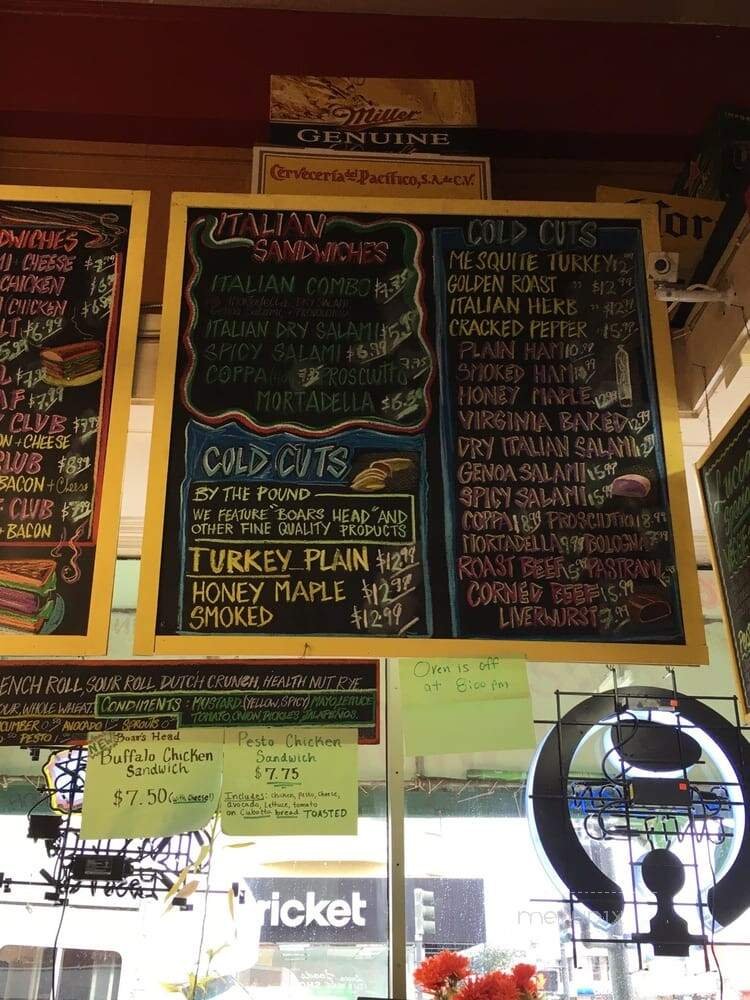 Miller
GENUINE
Cervecería del Pacífico, S.A. de C.V.
Cor
DWICHES
+ CHEESE
CHICKEN
CHICKEN
$6.99
CLUB
ON + CHEESE
CLUB $8.99
BACON + Cheese
CLUB
+ BACON
ITALIAN
SANDWICHES
ITALIAN COMBO $7.75
MORTADELLA DRY SALAMI
GENOA SALAMI + PROVOLONE
ITALIAN DRY SALAMI
SPICY SALAMI $6.99
COPPA PROSCIUTTO 7.75
MORTADELLA
COLD CUTS
BY THE POUND
WE FEATURE "BOARS HEAD" AND
OTHER FINE QUALITY PRODUCTS
TURKEY PLAIN $12.99
HONEY MAPLE $12.99
SMOKED $12.99
COLD CUTS
MESQUITE TURKEY
GOLDEN ROAST " $12.99
ITALIAN HERB "
CRACKED PEPPER
PLAIN HAM
SMOKED HAM
HONEY MAPLE
VIRGINIA BAKED
DRY ITALIAN SALAMI
GENOA SALAMI 15.99
SPICY SALAMI 15.99
COPPA 18.99 PROSCIUTTO 18.99
MORTADELLA 9.99 BOLOGNA
ROAST BEEF PASTRAMI
CORNED BEEF 15.99
LIVERWURST 7.99
ENCH ROLL, SOUR ROLL DUTCH CRUNCH, HEALTH NUT RYE,
OUR WHOLE WHEAT. CONDIMENTS : MUSTARD (YELLOW, SPICY) MAYO LETTUCE
TOMATO ONION PICKLES JALAPEÑOS.
CUMBER AVOCADO SPROUTS
PESTO
Oven is off
at 8:00 pm
NEW
Boar's Head
Buffalo Chicken
Sandwich
$7.50 (with cheese!)
Pesto Chicken
Sandwich
$7.75
Includes: chicken, pesto, cheese,
avocado, lettuce, tomato
on Ciabatta bread TOASTED
ricket